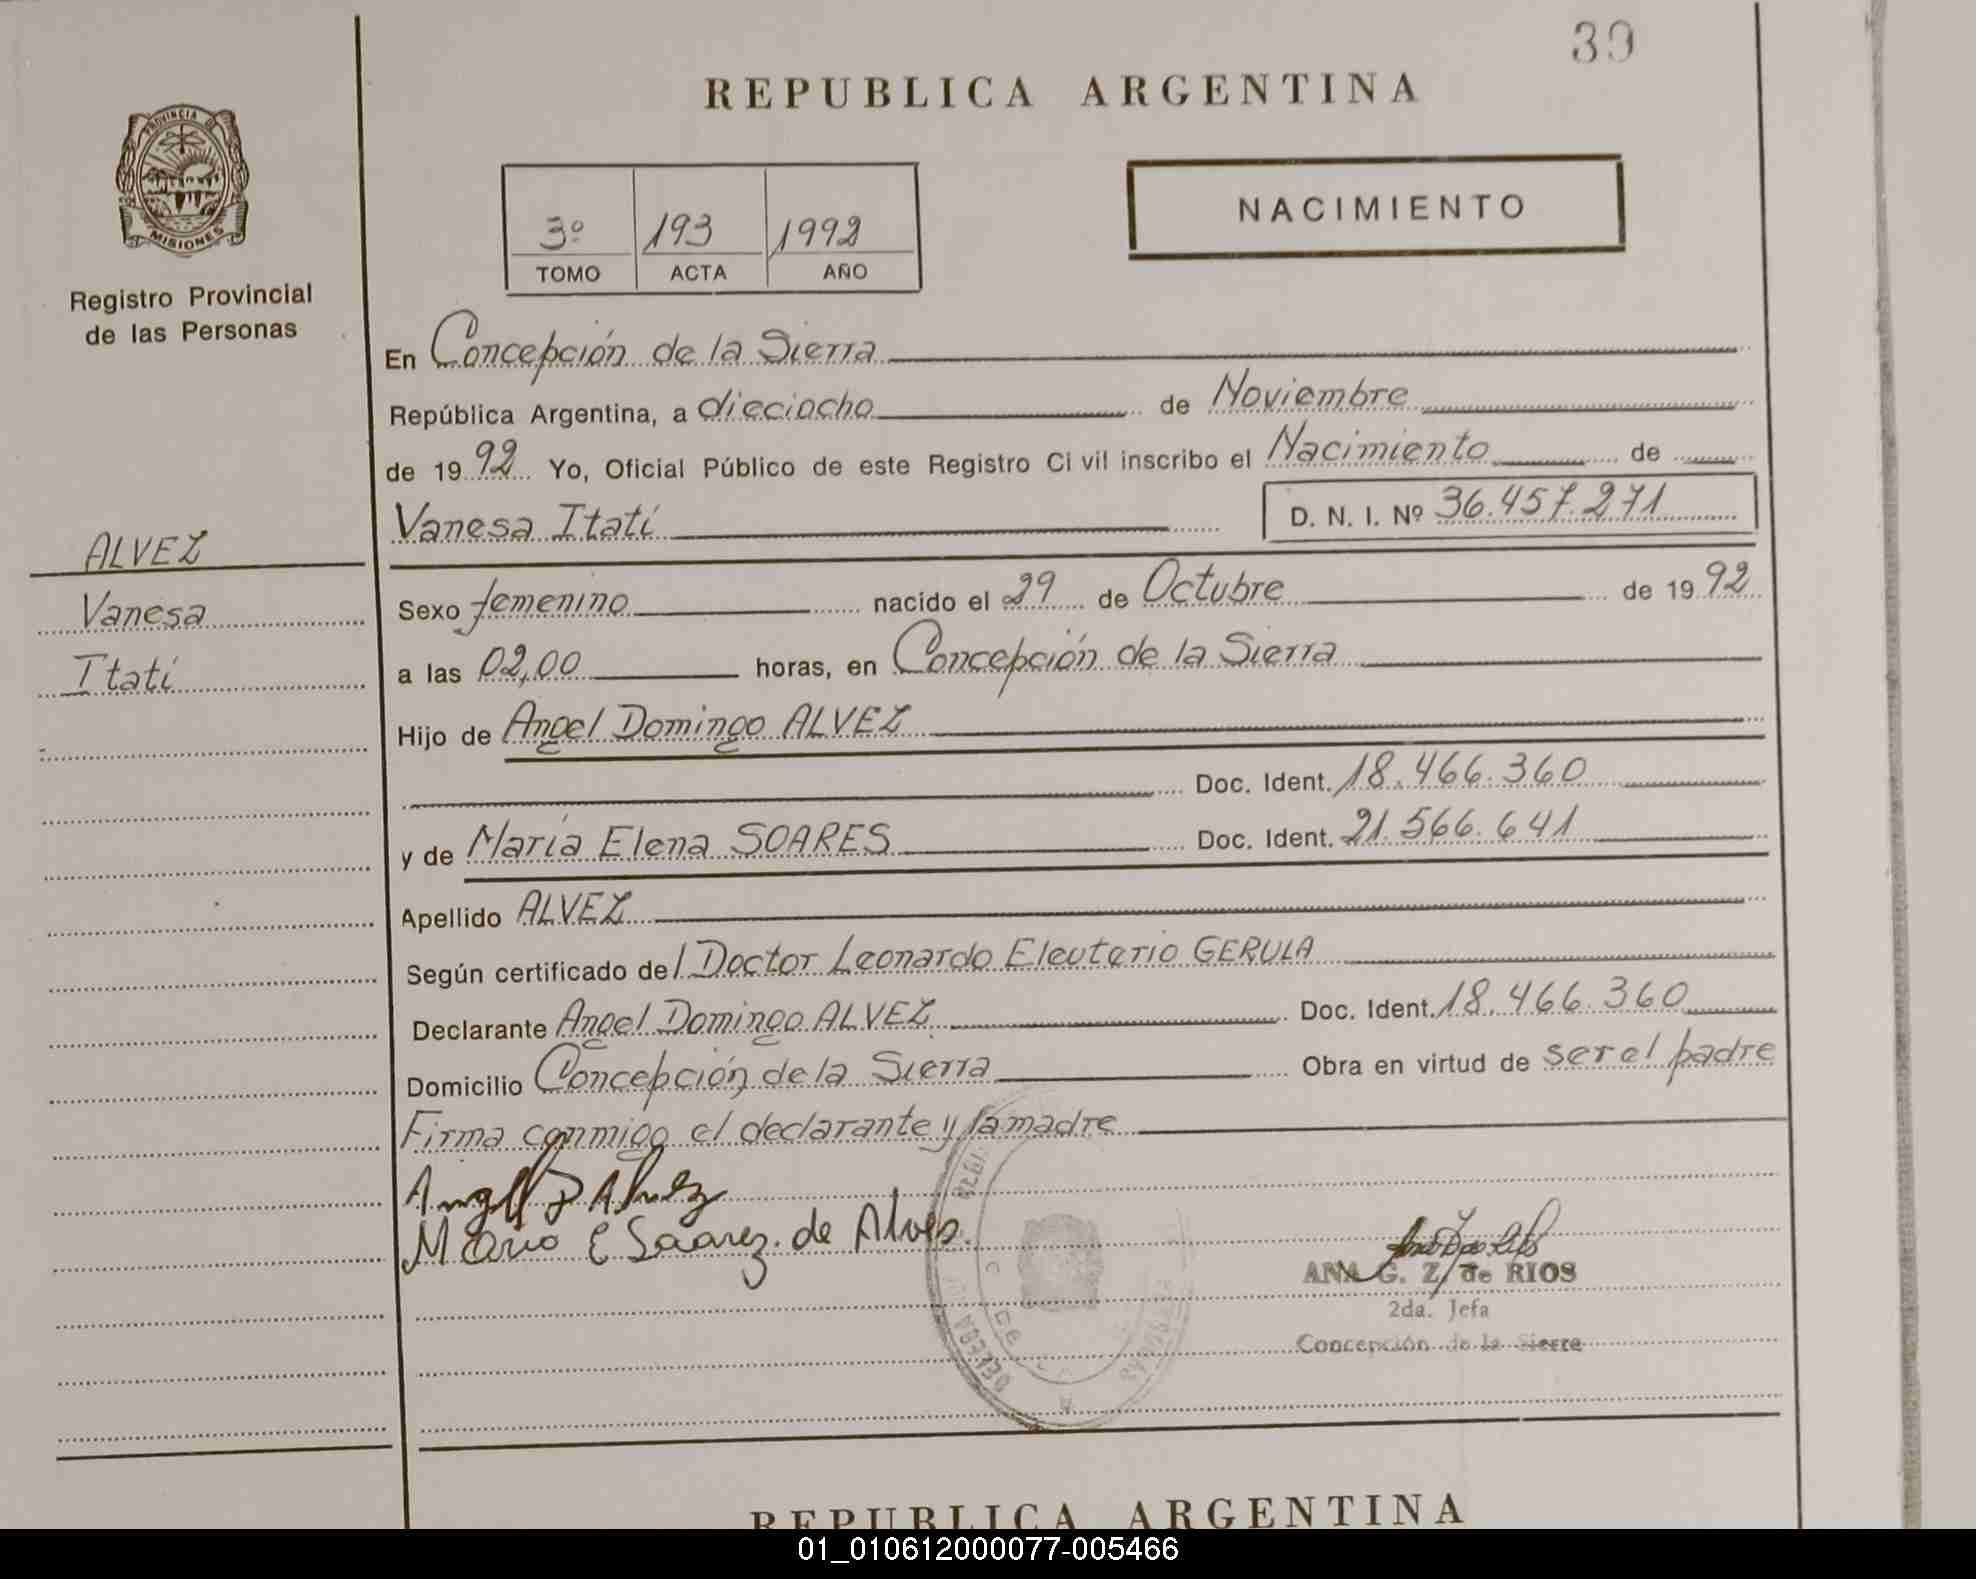 39
REPUBLICA ARGENTINA
PROVINCIA DE
MISIONES
Registro Provincial
de las Personas
3º 193 1992
TOMO ACTA AÑO
NACIMIENTO
En Concepción de la Sierra
República Argentina, a dieciocho de Noviembre
de 1992 Yo, Oficial Público de este Registro Ci vil inscribo el Nacimiento de
Vanesa Itatí D. N. I. Nº 36.457.271
ALVEZ
Vanesa
Itatí
Sexo femenino nacido el 29 de Octubre de 1992
a las 02,00 horas, en Concepción de la Sierra
Hijo de Angel Domingo ALVEZ
Doc. Ident. 18.466.360
y de María Elena SOARES Doc. Ident. 21.566.641
Apellido ALVEZ
Según certificado del Doctor Leonardo Eleuterio GERULA
Declarante Angel Domingo ALVEZ Doc. Ident. 18.466.360
Domicilio Concepción de la Sierra Obra en virtud de ser el padre
Firma conmigo el declarante y la madre
Angel D Alvez
Maria E Soarez de Alves.
ANA G. Z. de RIOS
2da. Jefa
Concepción de la Sierra
REPUBLICA ARGENTINA
01_010612000077-005466